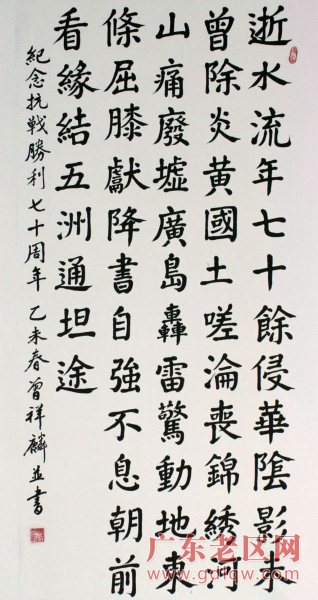 逝水流年七十餘侵華陰影未
曾除炎黄國土嗟淪喪錦綉河
山痛廢墟廣島轟雷驚動地東
條屈膝獻降書自強不息朝前
看緣結五洲通坦途
紀念抗戰勝利七十周年 乙未春曾祥麟並書
广东老区网
www.gdlqw.com